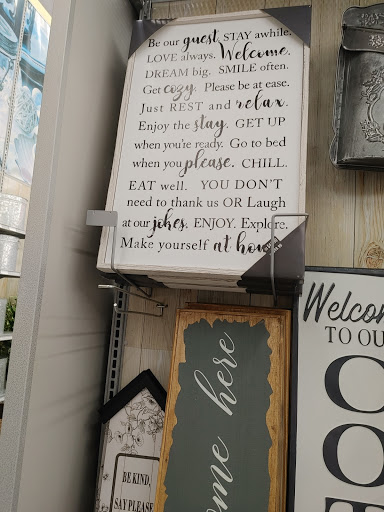 Be our guest. STAY awhile.
LOVE always. Welcome.
DREAM big. SMILE often.
Get cozy. Please be at ease.
Just REST and relax.
Enjoy the stay. GET UP
when you're ready. Go to bed
when you please. CHILL.
EAT well. YOU DON'T
need to thank us OR Laugh
at our jokes. ENJOY. Explore.
Make yourself at home
Welcom
TO OU
C
O
T
me here
ome
BE KIND,
SAY PLEASE